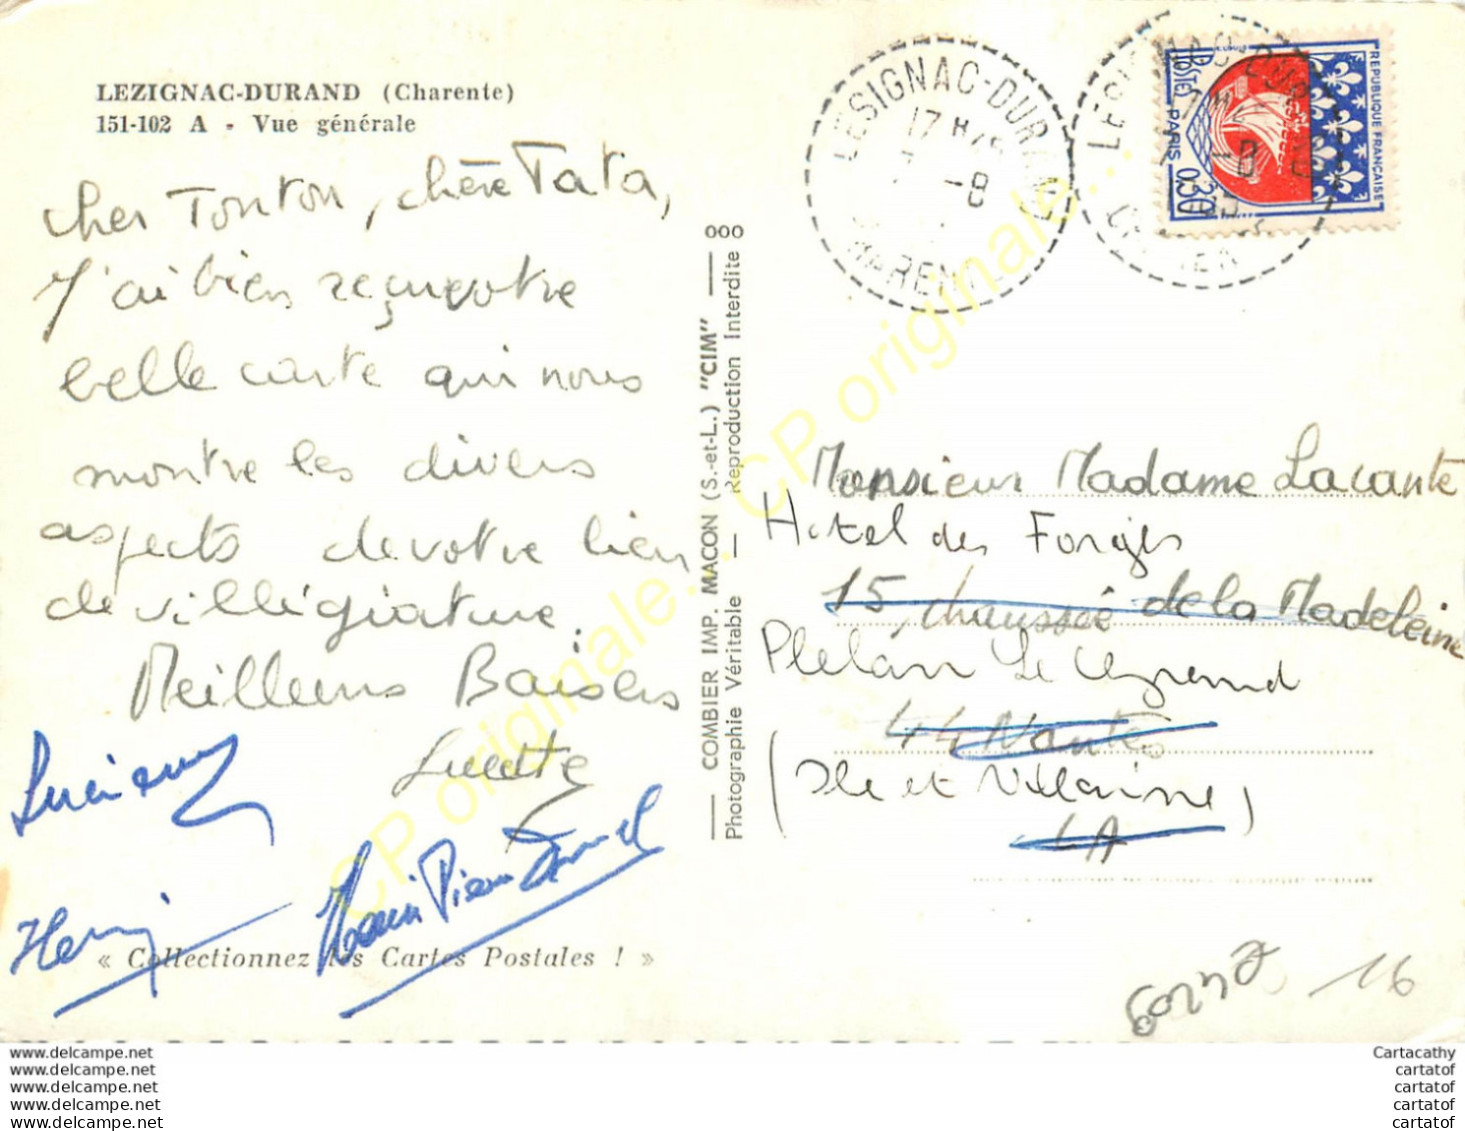 LEZIGNAC-DURAND (Charente)
151-102 A - Vue générale
cher Tonton, chère Tata,
J'ai bien reçu votre
belle carte qui nous
montre les divers
aspects de votre lieu
de villégiature.
Meilleurs Baisers
Lucette
Lucienne
Henri
« Collectionnez les Cartes Postales ! »
COMBIER IMP. MACON (S.-et-L.) "CIM"
Photographie Véritable — Reproduction Interdite
000
LESIGNAC-DURAND
17 H
-8
CHARENTE
REPUBLIQUE FRANÇAISE
POSTES
PARIS 0,30
Monsieur Madame Lacante
Hotel des Forges
15 chaussée de la Madeleine
Plelan Le Grand
44 Nantes
(Ile et Vilaine)
LA
16
CP originale...
CP originale...
CP originale...
www.delcampe.net
www.delcampe.net
www.delcampe.net
www.delcampe.net
www.delcampe.net
Cartacathy
cartatof
cartatof
cartatof
cartatof